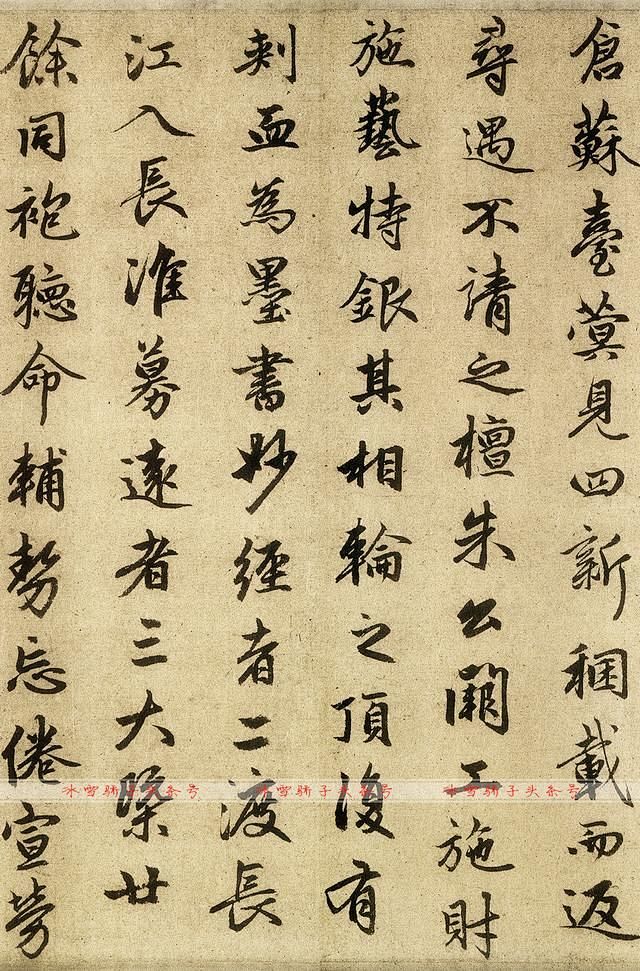 倉蘇臺蓂見四新稛載而返
尋遇不請之檀朱公闢工施財
施藝特銀其相輪之頂復有
刺血為墨書妙經者二渡長
江入長淮募遠者三大檗廿
餘同袍聽命輔勢忘倦宣勞
冰雪骄子头条号 冰雪骄子头条号 冰雪骄子头条号